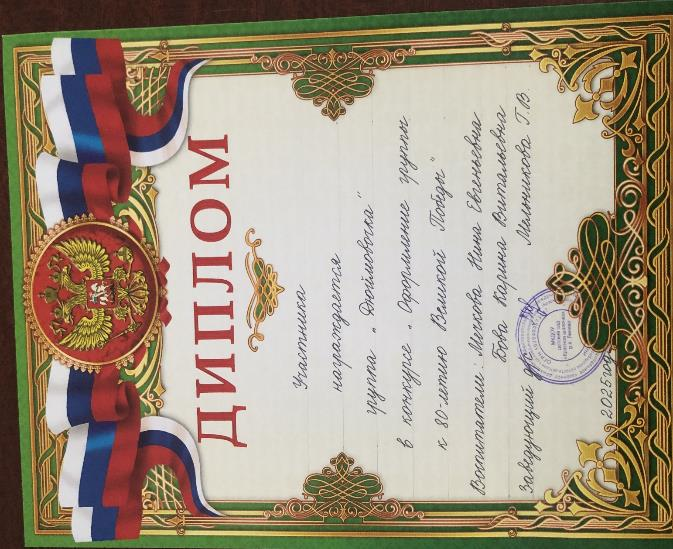 ДИПЛОМ
Участника
награждается
группа „Дюймовочка"
в конкурсе „Оформление группы
к 80-летию Великой Победы"
Воспитатели: Мечкова Нина Евгеньевна
Бова Карина Витальевна
Заведующий д/с Мельникова Г.В.
2025 год
МАДОУ
детский сад